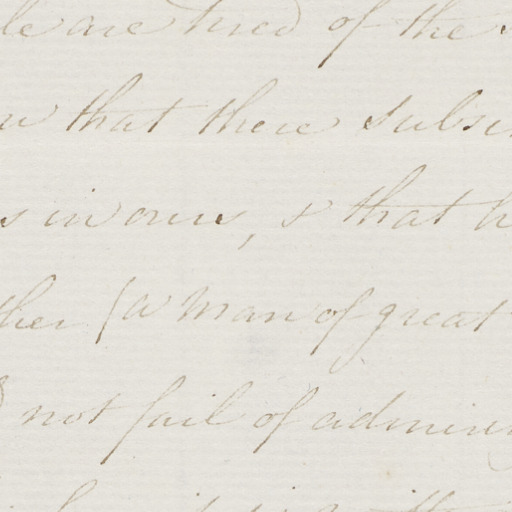 le are tired of the
that there subsi
s in ours, & that h
ther (a man of great
not fail of admiring